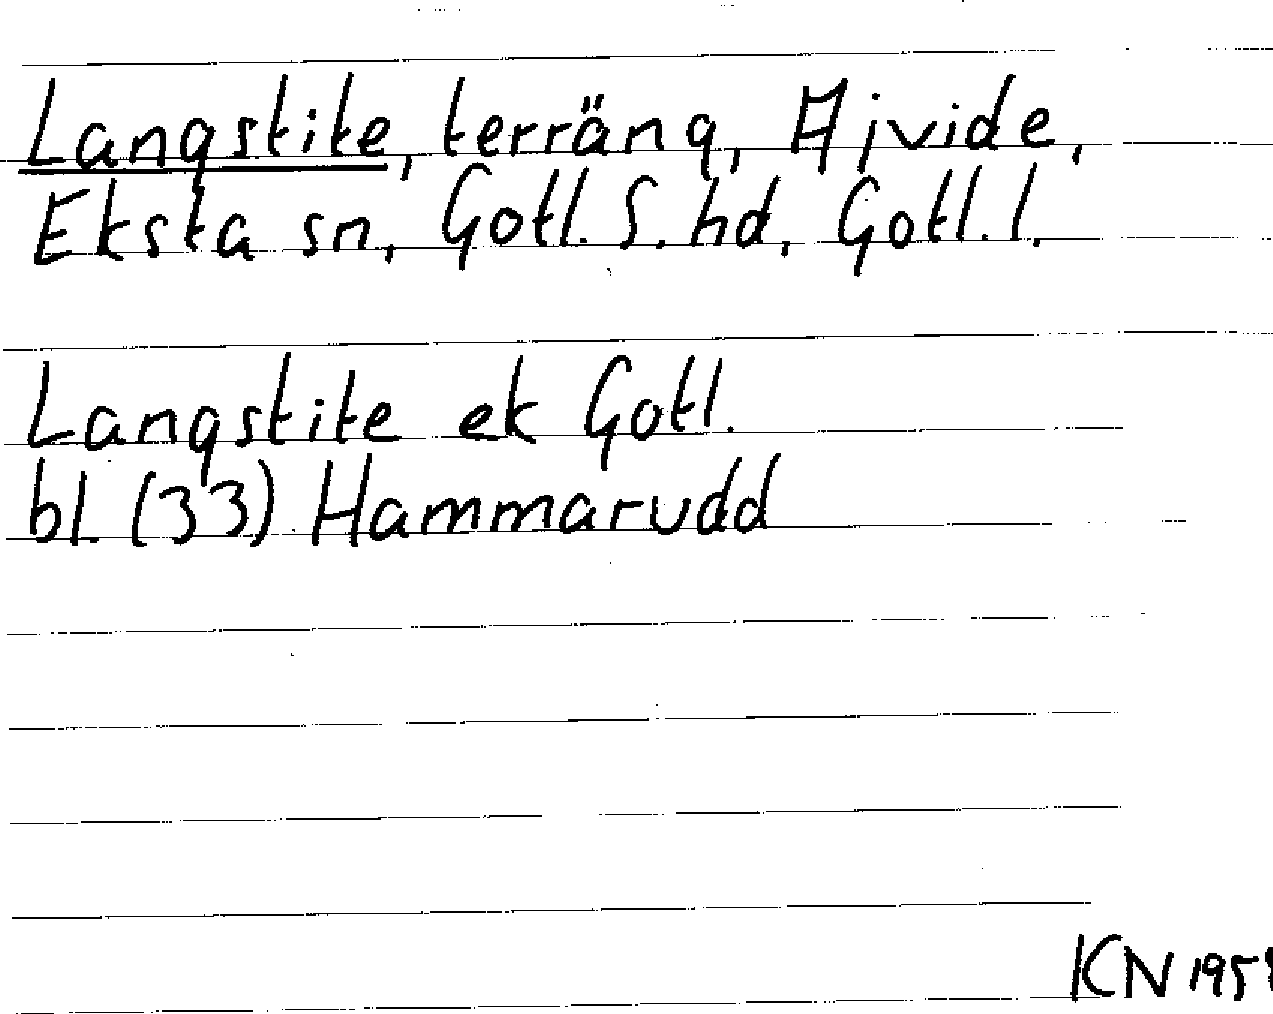 Langstite, terräng, Ajvide,
Eksta sn, Gotl. S. hd, Gotl. l.
Langstite ek Gotl.
bl. (33) Hammarudd
KN